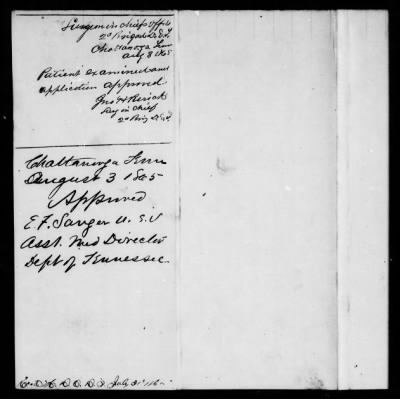 Surgeon in Chief's Office
2d Brigade
Chattanooga Tenn
Aug 3 1865
Patient examined and
application approved
Surg in Chief
2d Brig
Chattanooga Tenn
August 3 1865
Approved
E F. Sanger U. S. V
Asst. Med Director
Dept of Tennessee
July 31" 186